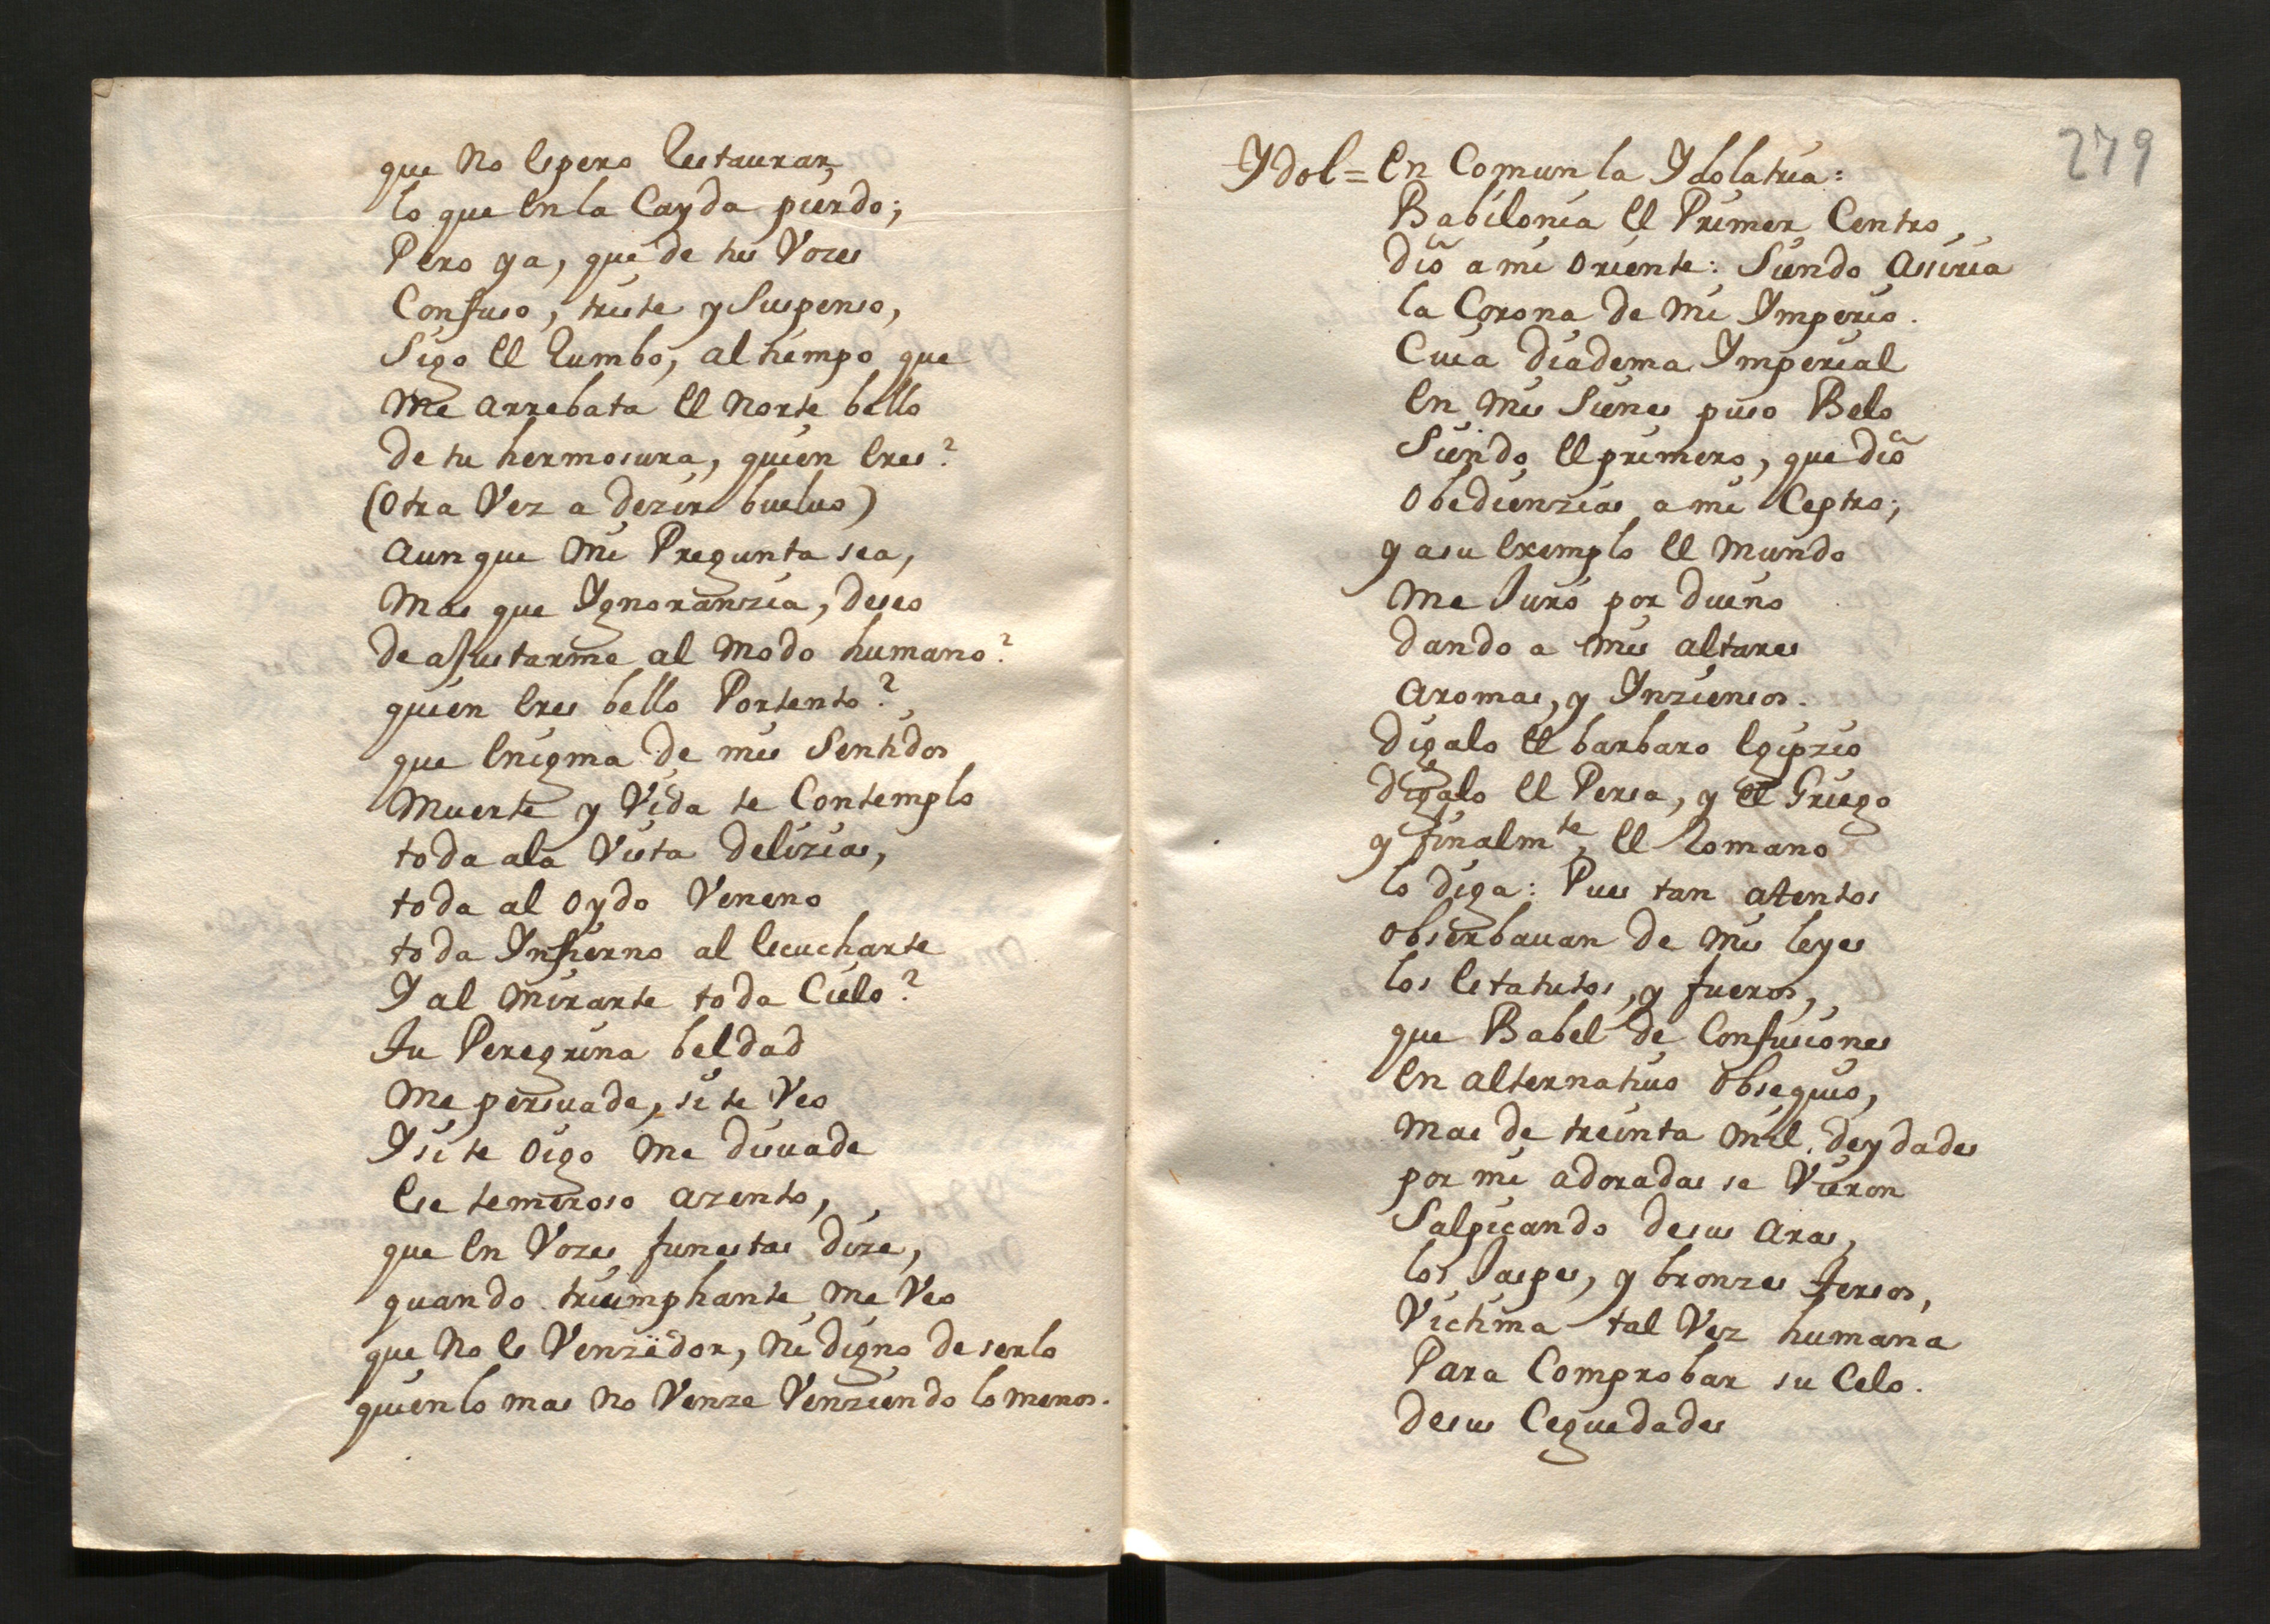 que no espero Restaurar,
lo que en la Cayda pierdo;
Pero ya, que de tus Vozes
Confuso, triste y Suspenso,
Sigo el Rumbo, al tiempo que
me arrebata el norte bello
de tu hermosura, quien eres?
(Otra Vez a dezir buelvo)
aunque mi Pregunta sea,
mas que Ygnoranzia, deseo
de ajustarme al modo humano?
quien eres bello Portento?
que enigma de mis Sentidos
muerte y Vida te Contemplo
toda ala Vista delizias,
toda al oydo Veneno
toda Ynfierno al escucharte
Y al mirarte toda Cielo?
Tu Peregrina beldad
me persuade, si te Veo
Y si te oigo me disuade
ese temeroso azento,
que en Vozes funestas dize,
quando triumphante me Veo
que no es Venzedor, ni digno de serlo
quien lo mas no Venze Venziendo lo menos.
279
Ydol = en Comun la Ydolatria:
Babilonia el Primer Centro,
dió a mi oriente: Siendo Assiria
la Corona de mi Ymperio.
Cuia diadema Ymperial
en mis Sienes puso Belo
Siendo el primero, que dió
obedienzias a mi Ceptro;
y asu exemplo el mundo
me Juró por dueño
dando a mis altares
aromas, y Ynziensos.
digalo el barbaro egipzio
digalo el Persa, y el Griego
y finalmte, el Romano
lo diga: Pues tan atentos
obserbauan de mis leyes
los estatutos, y fueros,
que Babel de Confusiones
en alternatiuo obsequio,
mas de treinta mil deydades
por mi adoradas se Vieron
Salpicando desus aras,
los Jaspes, y bronzes tersos,
Victima tal Vez humana
Para Comprobar su Celo.
desus Ceguedades